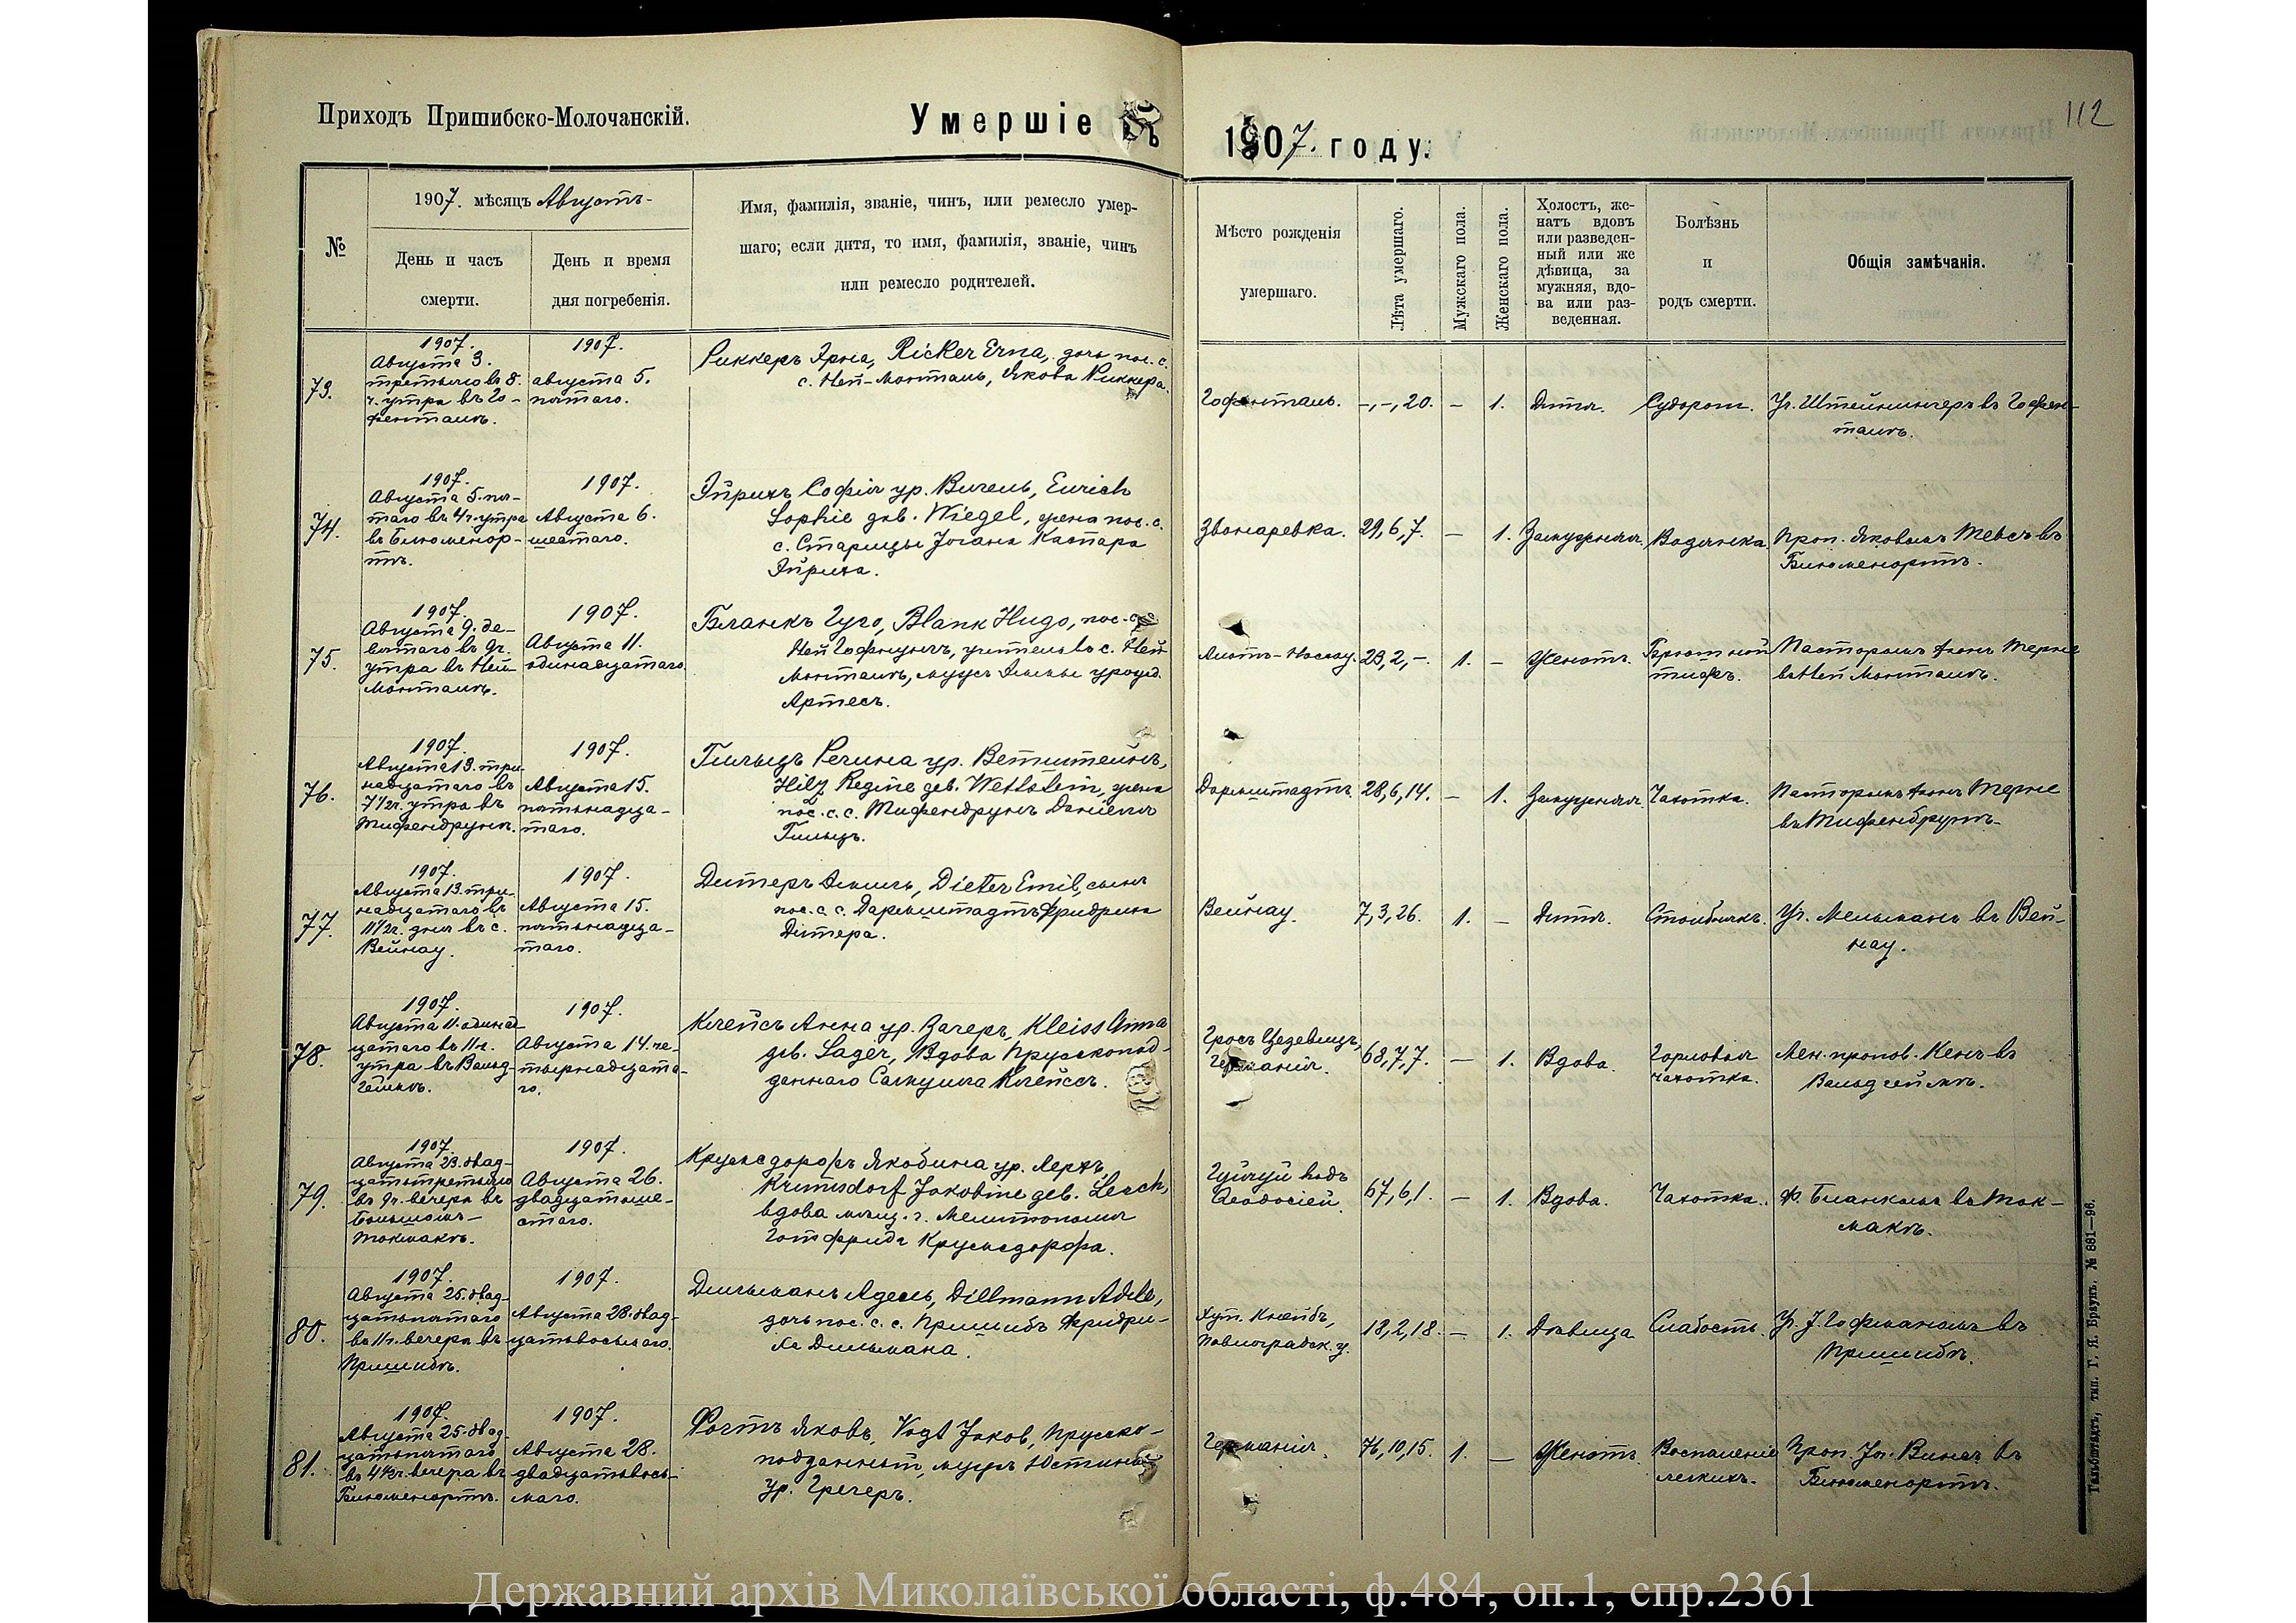 Приходъ Пришибско-Молочанскій.
Умершіе въ
1907. году.
112
№
1907. мѣсяцъ Августъ
День и часъ
смерти.
День и время
дня погребенія.
Имя, фамилія, званіе, чинъ, или ремесло умер-
шаго; если дитя, то имя, фамилія, званіе, чинъ
или ремесло родителей.
Мѣсто рожденія
умершаго.
Лѣта умершаго.
Мужскаго пола.
Женскаго пола.
Холостъ, же-
натъ вдовъ
или разведен-
ный или же
дѣвица, за
мужняя, вдо-
ва или раз-
веденная.
Болѣзнь
и
родъ смерти.
Общія замѣчанія.
73.
1907.
Августа 3.
третьяго въ 8.
ч. утра въ Го-
фенталѣ.
1907.
августа 5.
пятаго.
Риккеръ Эрна, Ricker Erna, дочь пос. с.
с. Ней-Монталь, Якова Риккера.
Гофенталь.
-,-,20.
-
1.
Дитя.
Судороги.
Уч. Штейнингеръ въ Гофен-
талѣ.
74.
1907.
Августа 5. пя-
таго въ 4 ч. утра
въ Блюменор-
тѣ.
1907.
Августа 6.
шестаго.
Эйрихъ Софія ур. Вигель, Eurich
Sophie geb. Wiegel, жена пос. с.
с. Старицы Іогана Каспара
Эйриха.
Звонаревка.
29,6,7.
-
1.
Замужняя.
Водянка.
Проп. Яковомъ Тевсъ въ
Блюменортѣ.
75.
1907.
Августа 9. де-
вятаго въ 9 ч.
утра въ Ней
Монталѣ.
1907.
Августа 11.
одинадцатаго.
Бланкъ Гуго, Blank Hugo, пос. с.
Ней Гофнунгъ, учитель въ с. Ней
Монталѣ, мужъ Эммы урожд.
Артесъ.
Альтъ-Нассау.
23,2,-.
1.
-
Женатъ.
Брюшной
тифъ.
Пасторомъ фонъ Терне
въ Ней Монталѣ.
76.
1907.
Августа 13. три-
надцатаго въ
7 1/2 ч. утра въ
Тифенбрунѣ.
1907.
Августа 15.
пятьнадца-
таго.
Гильцъ Регина ур. Ветштейнъ,
Hilz Regine geb. Wettstein, жена
пос. с. с. Тифенбрунъ Даніеля
Гильцъ.
Дармштадтъ.
28,6,14.
-
1.
Замужняя.
Чахотка.
Пасторомъ фонъ Терне
въ Тифенбрунѣ.
77.
1907.
Августа 13. три-
надцатаго въ
11 1/2 ч. дня въ с.
Вейнау.
1907.
Августа 15.
пятьнадца-
таго.
Дитеръ Эмиль, Dieter Emil, сынъ
пос. с. с. Дармштадтъ Фридриха
Дитера.
Вейнау.
7,3,26.
1.
-
Дитя.
Столбнякъ.
Уч. Мельманъ въ Вей-
нау.
78.
1907.
Августа 11. одинад-
цатаго въ 11 ч.
утра въ Вальд-
геймѣ.
1907.
Августа 14. че-
тырнадцата-
го.
Клейсъ Анна ур. Загеръ, Kleiss Anna
geb. Sager, Вдова Прусскопод-
даннаго Самуила Клейссъ.
Гросъ
Германія.
68,7,7.
-
1.
Вдова.
Горловая
чахотка.
Мен. пропов. Кенъ въ
Вальдгеймѣ.
79.
1907.
Августа 23. двад-
цатьтретьяго
въ 9 ч. вечера въ
Большомъ-
Токмакѣ.
1907.
Августа 26.
двадцатьше-
стаго.
Крумсдорфъ Якобина ур. Лерхъ,
Krumsdorf Jakobine geb. Lerch,
вдова мѣщ. г. Мелитополя
Готфрида Крумсдорфа.
подъ
Ѳеодосіей.
67,6,1.
-
1.
Вдова.
Чахотка.
Ф. Бланкомъ въ Ток-
макѣ.
80.
1907.
Августа 25. двад-
цатьпятаго
въ 11 ч. вечера въ
Пришибѣ.
1907.
Августа 28. двад-
цатьвосьмаго.
Дильманъ Адель, Dillmann Adele,
дочь пос. с. с. Пришибъ Фридри-
ха Дильмана.
Хут.
Павлоградск. у.
18,2,18.
-
1.
Дѣвица
Слабость.
Уч. J. Гофманомъ въ
Пришибѣ.
81.
1907.
Августа 25. двад-
цатьпятаго
въ 4 1/2 ч. вечера въ
Блюменортѣ.
1907.
Августа 28.
двадцатьвось-
маго.
Фогтъ Яковъ, Vogt Jakob, Прусско-
подданный, мужъ Юстины
ур. Грегеръ.
Германія.
76,10,15.
1.
-
Женатъ.
Воспаленіе
легкихъ.
Проп. Винсъ въ
Блюменортѣ.
Гальбштадтъ, тип. Г. Я. Браунъ. № 881—96.
Державний архів Миколаївської області, ф.484, оп.1, спр.2361